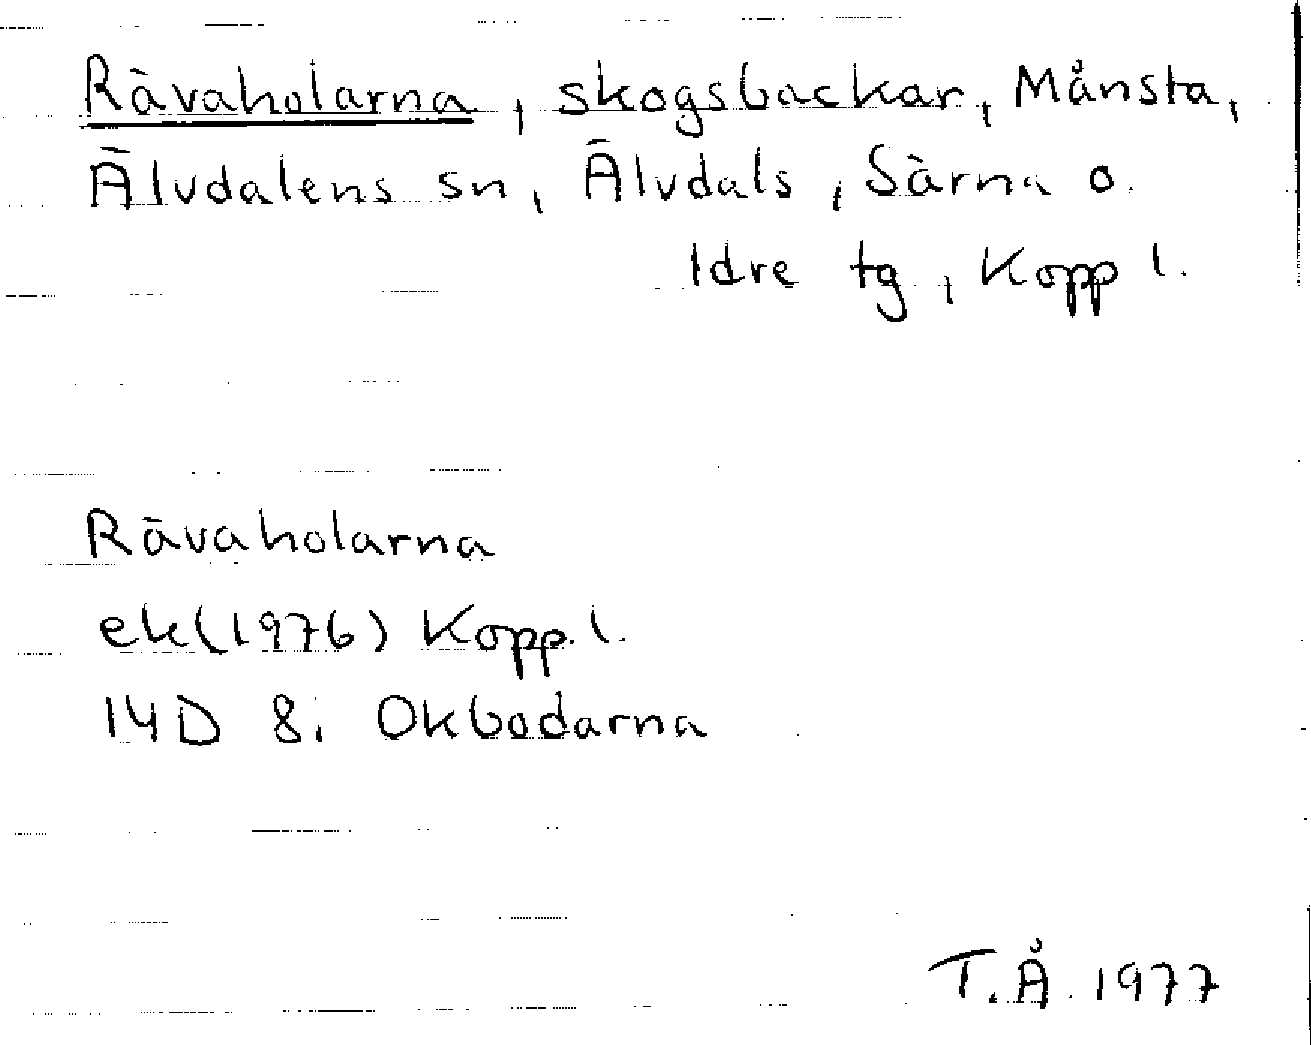 Rävaholarna, skogsbackar, Månsta,
Älvdalens sn, Älvdals, Särna o.
Idre tg, Kopp l.
Rävaholarna
ek(1976) Kopp. l.
14D 8i Okbodarna
T.Å. 1977